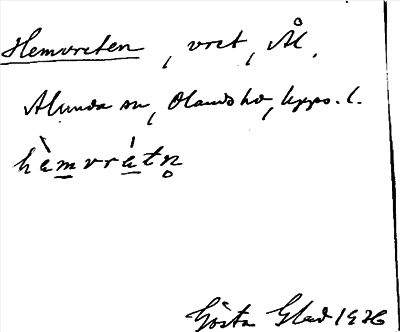 Hemvreten, vret, Ål.
Alunda sn, Olands hd, Upps. l.
hèm̲vrá̲tn̥
Gösta Glad 1926